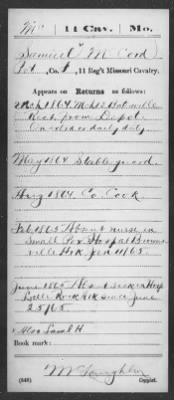 Mc | 11 Cav. | Mo.
Samuel McCord
Pvt., Co. F, 11 Reg't Missouri Cavalry.
Appears on Returns as follows:
Mch 1864
Recd. from Depot.
On extra or daily duty
May 1864 Stable guard.
Aug 1864 Co. Cook.
Feb 1865 Absent nurse in
Small Pox Hospital
ville Ark. Jan 11/65.
June 1865 Absent sick in Hosp
Little Rock Ark since June
25/65.
Also Saml H
Book mark:
McLaughlin
(546) Copyist.